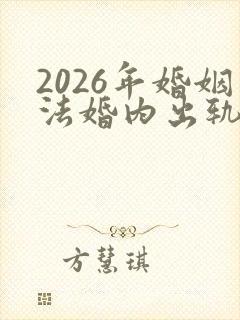 2026年婚姻
法婚内出轨
方慧琪